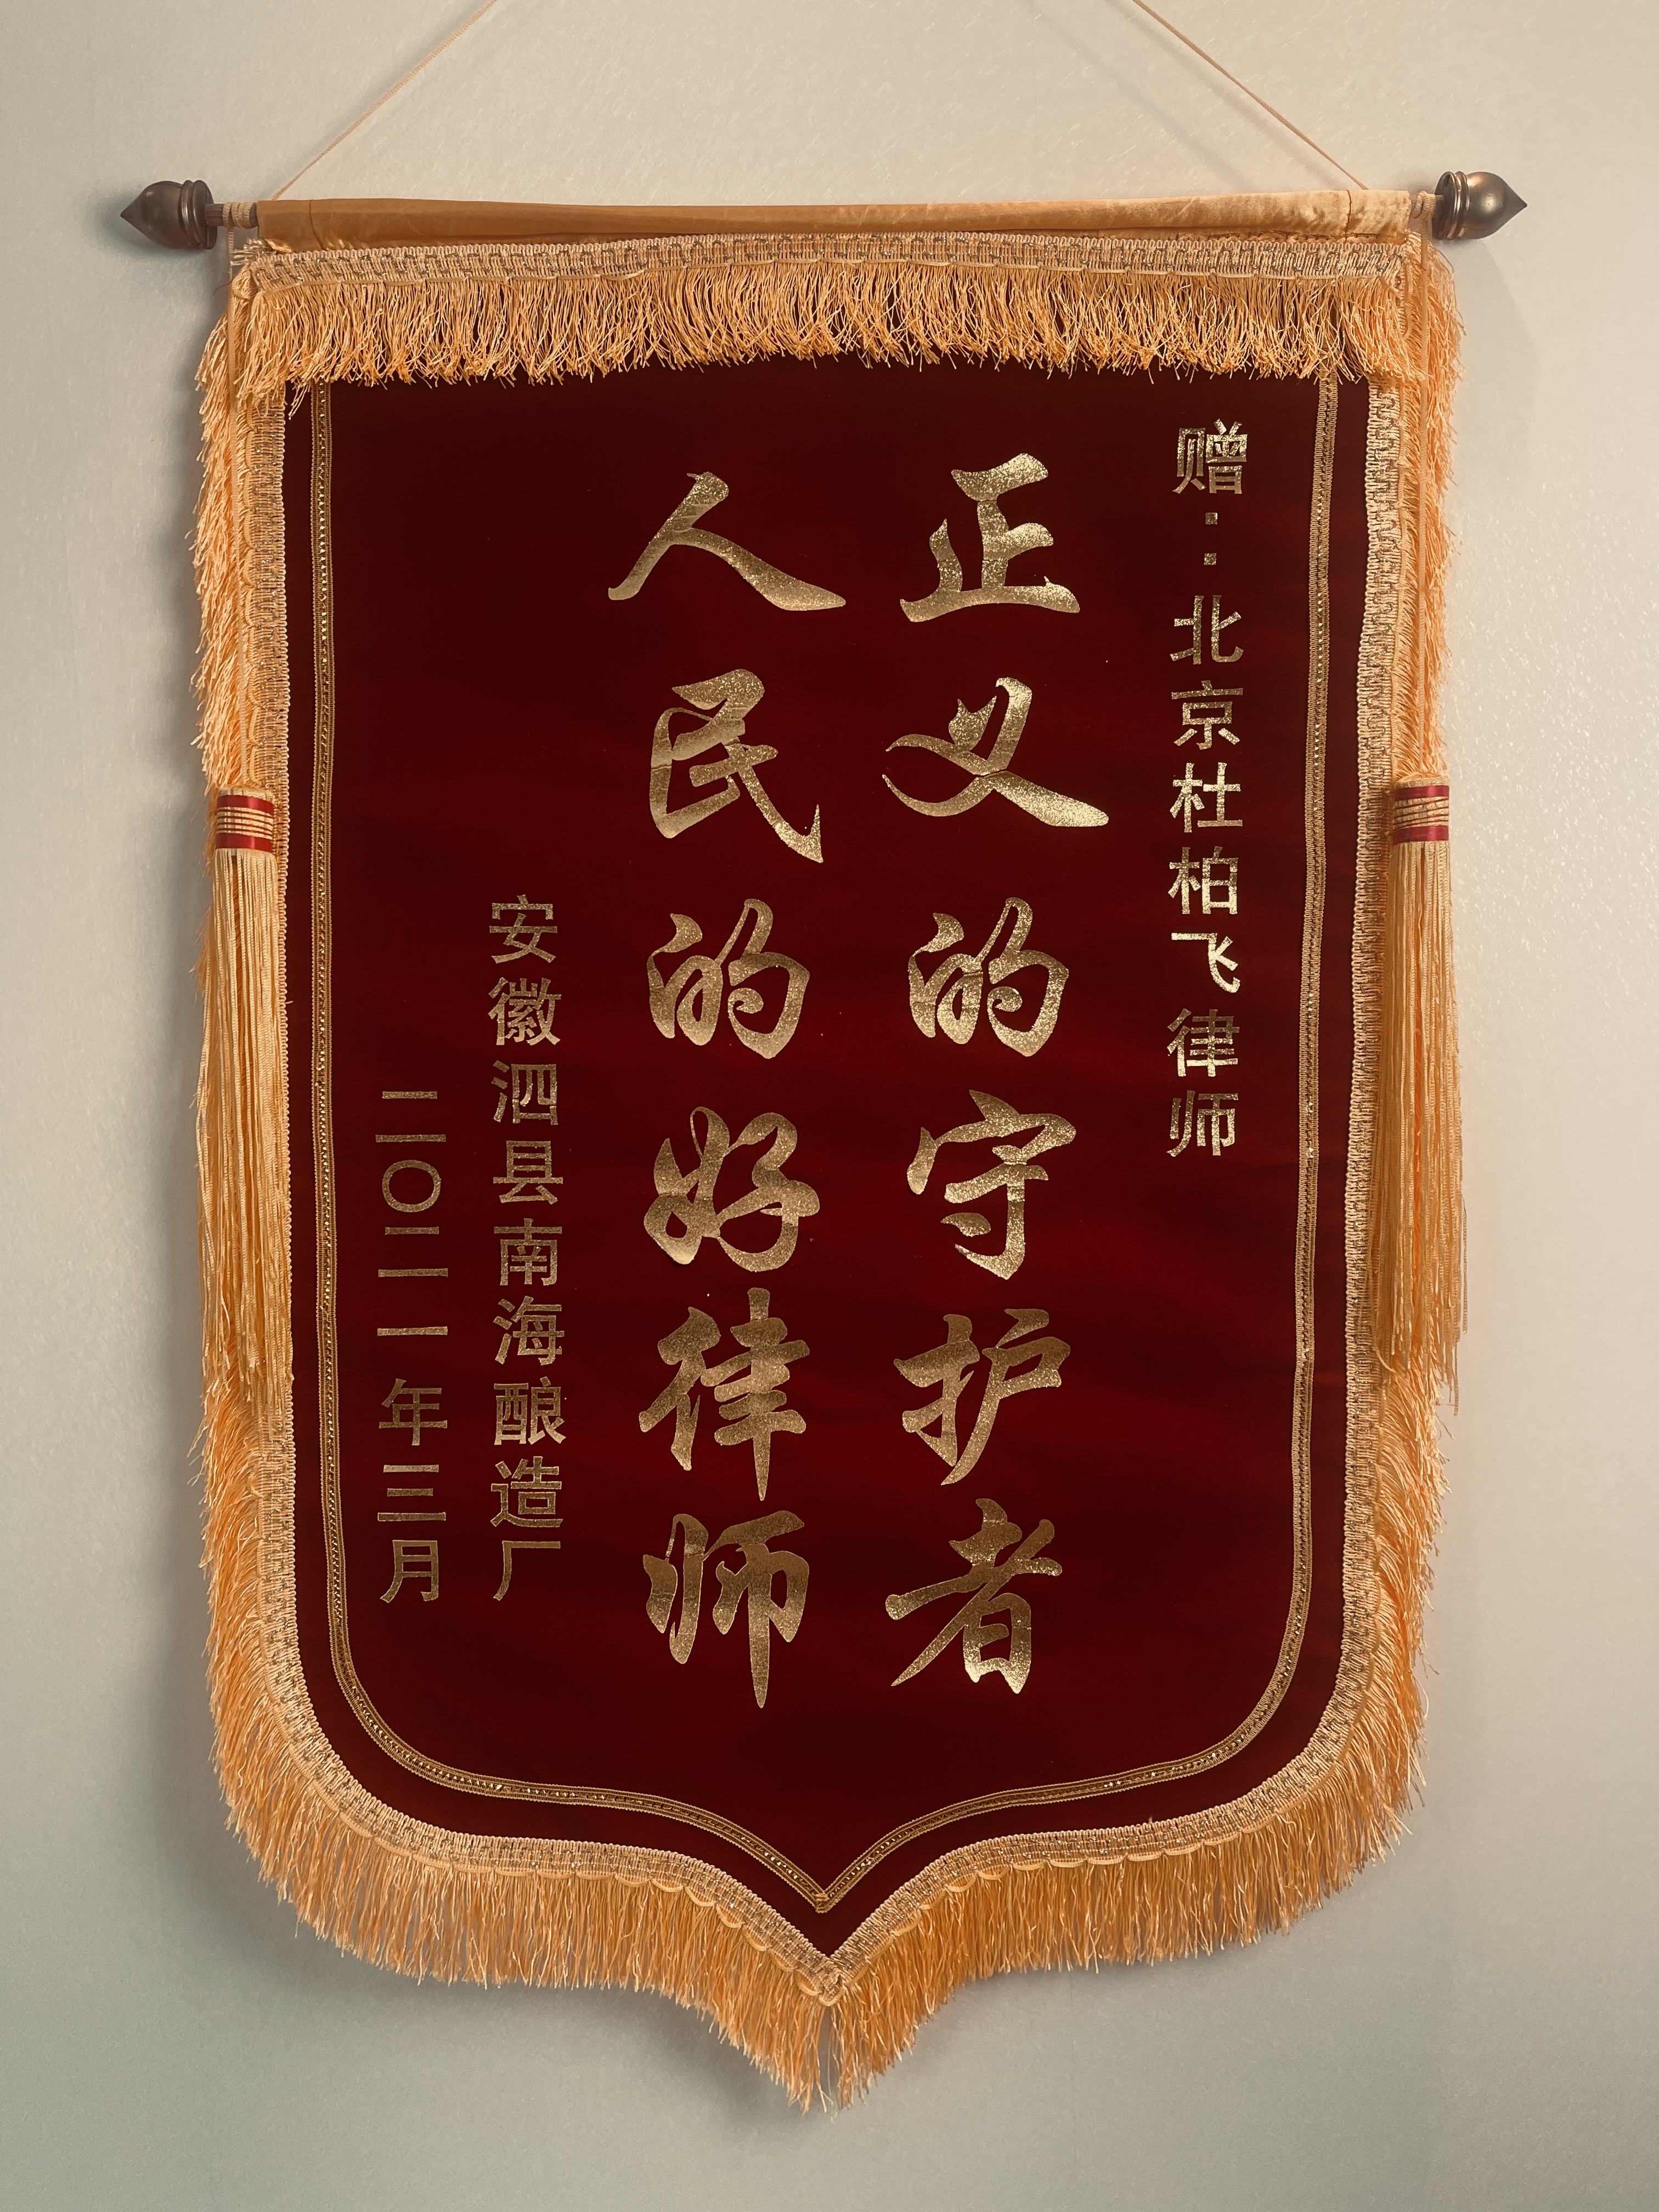 赠：北京杜柏飞律师
正义的守护者
人民的好律师
安徽泗县南海酿造厂
二〇二一年三月